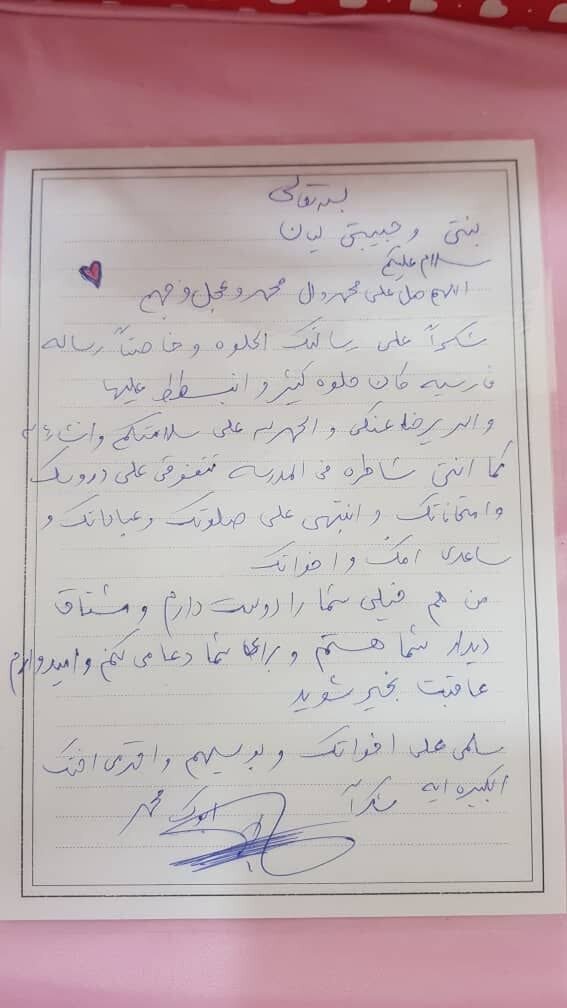 بسمه تعالی
بنتي و حبيبتي ليان
سلام عليكم
اللهم صل على محمد وال محمد وعجل فرجهم
شكراً على رسالتك الحلوه و خاصتاً رساله
فارسيه كان حلوه كثير و انبسطط عليها
والله يرضا عنكي و الحمد لله على سلامتكم وانشاءالله
كما انتي شاطره في المدرسه تتفوقي على دروسك
وامتحاناتك و انتبهي على صلوتك وعباداتك و
ساعدي امك و اخواتك
من هم خیلی شما را دوست دارم و مشتاق
دیدار شما هستم و برای شما دعا می کنم و امیدوارم
عاقبت بخیر شوید
سلمي على اخواتك و بوسيهم و اختك
الكبيره ايه شكراً
ابوك محمد